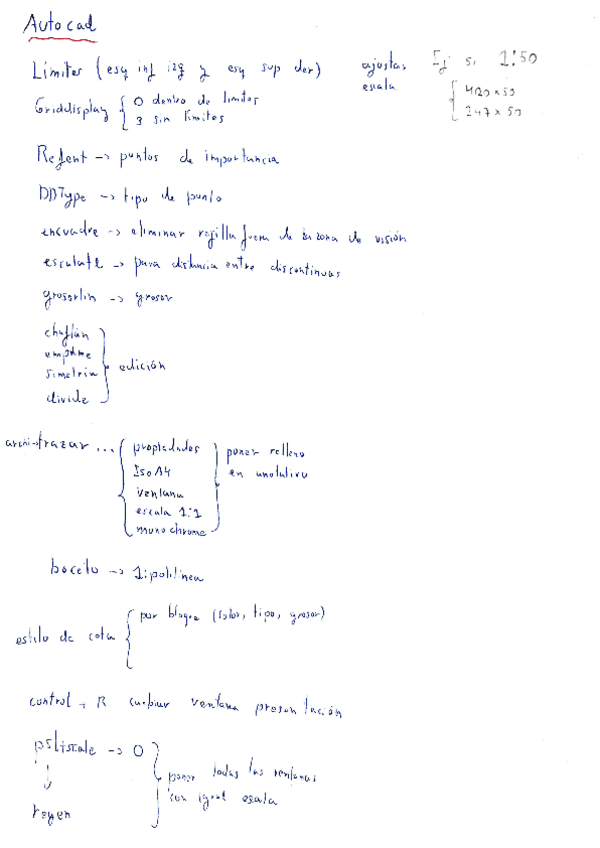 Autocad
Límites (esq inf izq y esq sup der) ajustar escala Ej si 1:50
420 x 50
297 x 50
Griddisplay { 0 dentro de límites
3 sin límites
Refent -> puntos de importancia
DDType -> tipo de punto
encuadre -> eliminar rejilla fuera de la zona de visión
escalatl -> para distancia entre discontinuas
grosorlin -> grosor
chaflán
empalme
simetría
divide
} edición
archi->trazar ... { propiedades
Iso A4
ventana
escala 1:1
monochrome
} poner relleno
en
boceto -> 1:polilínea
estilo de cota { por bloque (color, tipo, grosor)
control + R cambiar ventana presentación
psltscale -> 0
↓
regen
} poner todas las ventanas
con igual escala